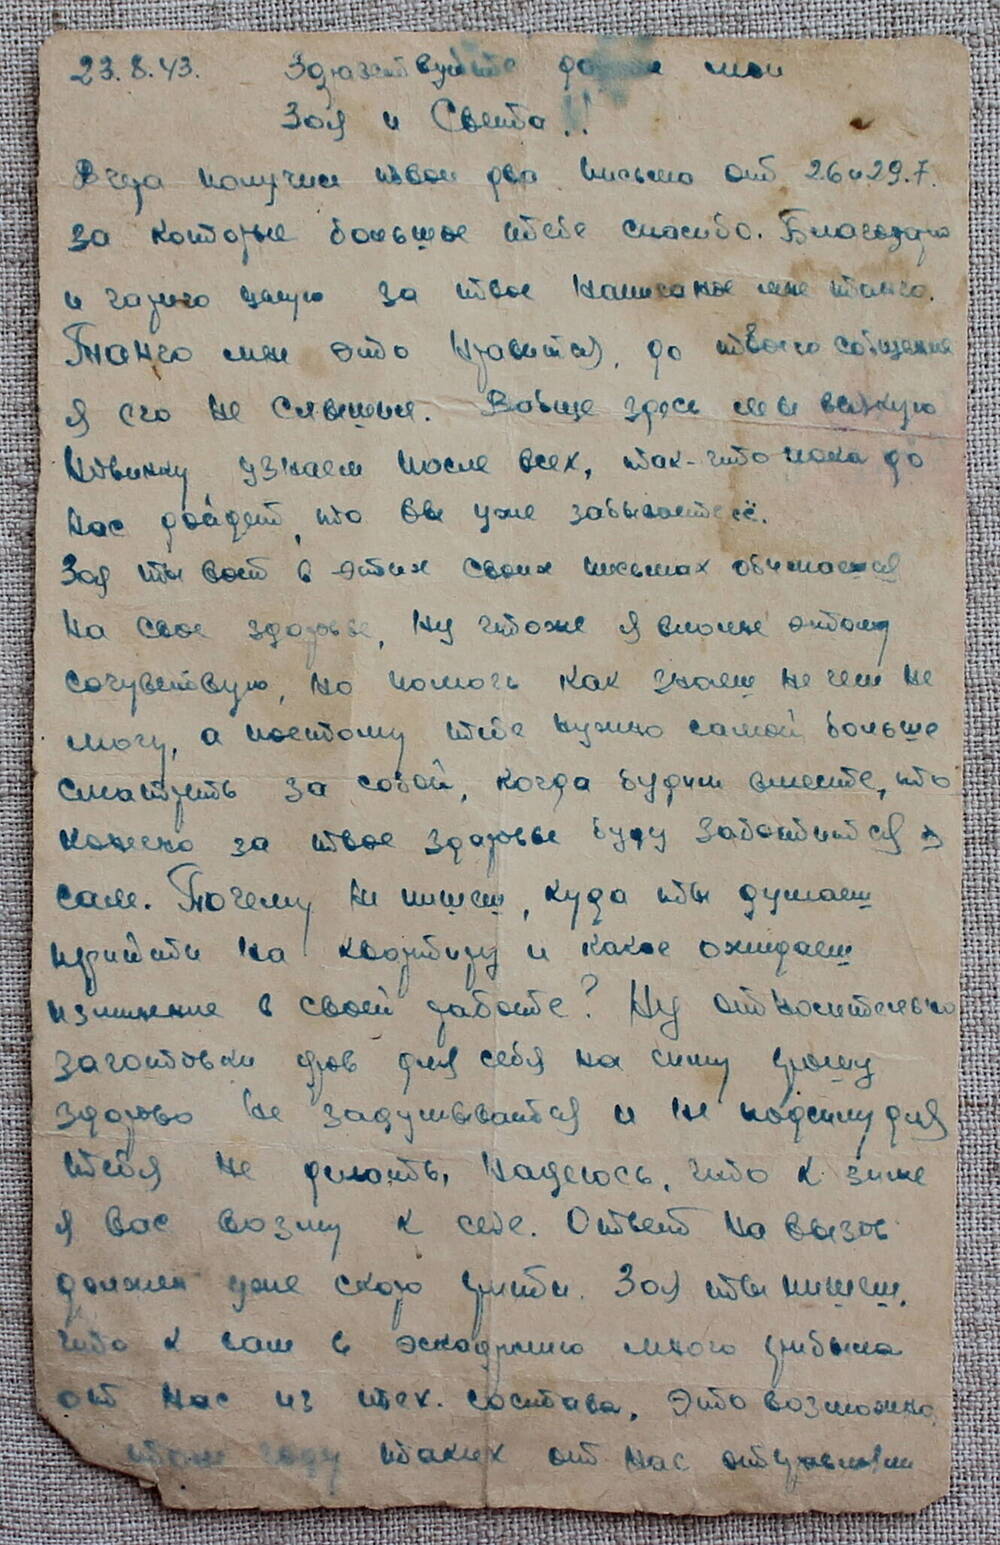 23.8.43. Здравствуйте мои
Зоя и Света!!
Вчера получил твои два письма от 26 и 29.7.
за которые большое тебе спасибо. Благодарю
и горячо целую за твое написаное мне танго.
Танго мне это нравится, до твоего сообщения
я его не слышал. Вобще здесь мы всякую
новинку узнаем после всех, так-что пока до
нас дойдет, то вы уже забываете её.
Зоя ты вот в этих своих письмах обижаешся
на свое здоровье, Ну чтоже я вполне этому
сочувствую, но помочь как знаеш не чем не
могу, а поетому тебе нужно самой больше
сматреть за собой, когда будем вместе, то
конечно за твое здоровье буду заботится я
сам. Почему не пишеш, куда ты думаеш
прийти на квартиру и какое ожидаеш
изминение в своей работе? Ну относительно
заготовки дров для себя на зиму прошу
здорово не задумыватся и не для
тебя не делать, надеюсь, что к зиме
я вас возму к себе. Ответ на вызов
должен уже скоро прити. Зоя ты пишеш,
что к вам в эскадрилю много прибыло
от нас из тех. состава, Это возможно,
году таких от нас отправляли